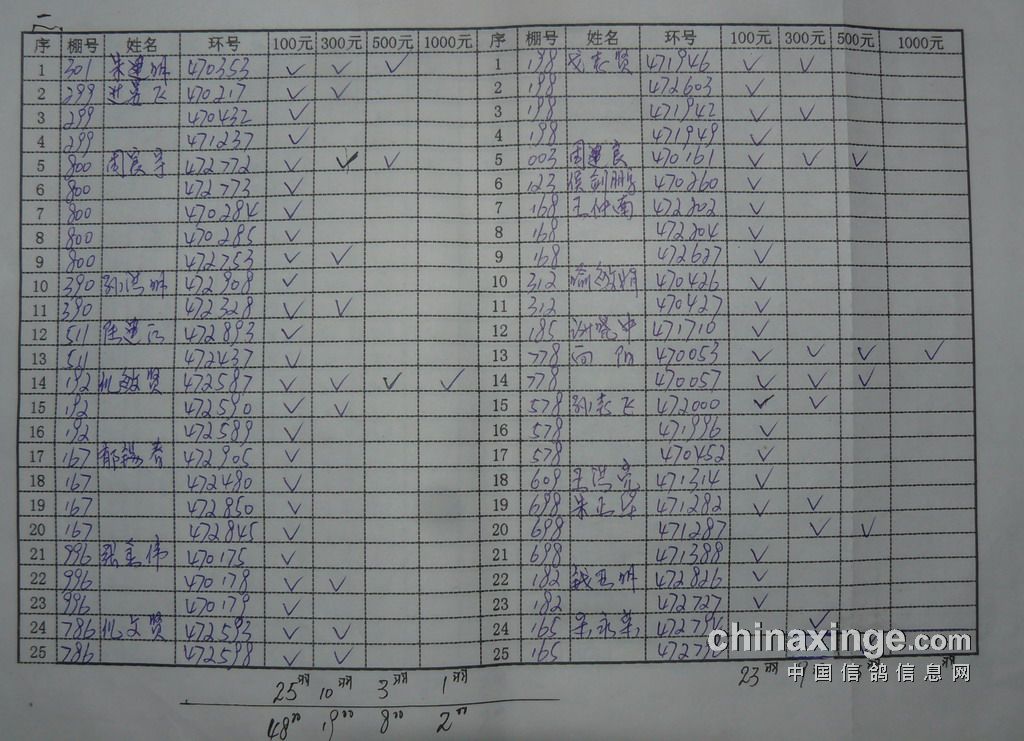 二
序 棚号 姓名 环号 100元 300元 500元 1000元 序 棚号 姓名 环号 100元 300元 500元 1000元
1 301 朱建明 470353 ✓ ✓ ✓ 1 198 贤 471946 ✓ ✓
2 299 飞 470217 ✓ ✓ 2 198 472603 ✓
3 299 470432 ✓ 3 198 471942 ✓ ✓
4 299 471237 ✓ 4 198 471949 ✓
5 800 周良 472772 ✓ ✓ ✓ 5 003 周建良 470161 ✓ ✓ ✓
6 800 472773 ✓ 6 123 侯剑鹏 470260 ✓
7 800 470284 ✓ 7 168 王仲南 472802 ✓
8 800 470285 ✓ 8 168 472804 ✓
9 800 472753 ✓ ✓ 9 168 472627 ✓
10 390 孙洪明 472908 ✓ 10 312 喻敏娟 470426 ✓
11 390 472328 ✓ ✓ 11 312 470427 ✓
12 511 陆建 472893 ✓ 12 185 中 471710 ✓
13 511 472437 ✓ 13 778 向阳 470053 ✓ ✓ ✓ ✓
14 192 倪敏贤 472587 ✓ ✓ ✓ ✓ 14 778 470057 ✓ ✓ ✓
15 192 472590 ✓ ✓ 15 578 孙志飞 472000 ✓ ✓
16 192 472589 ✓ 16 578 471996 ✓
17 167 郁锡春 472905 ✓ 17 578 470452 ✓
18 167 472480 ✓ 18 609 王洪亮 471314 ✓
19 167 472850 ✓ 19 698 朱正华 471282 ✓ ✓
20 167 472845 ✓ 20 698 471287 ✓ ✓
21 996 张金伟 470175 ✓ 21 698 471389 ✓
22 996 470178 ✓ ✓ 22 182 钱亚明 472826 ✓
23 996 470179 ✓ 23 182 472727 ✓
24 786 倪文贤 472593 ✓ ✓ 24 165 ✓
25 786 472598 ✓ ✓ 25 165
25羽 10羽 3羽 1羽 23羽
48 19 8 2
chinaxinge.com
中国信鸽信息网